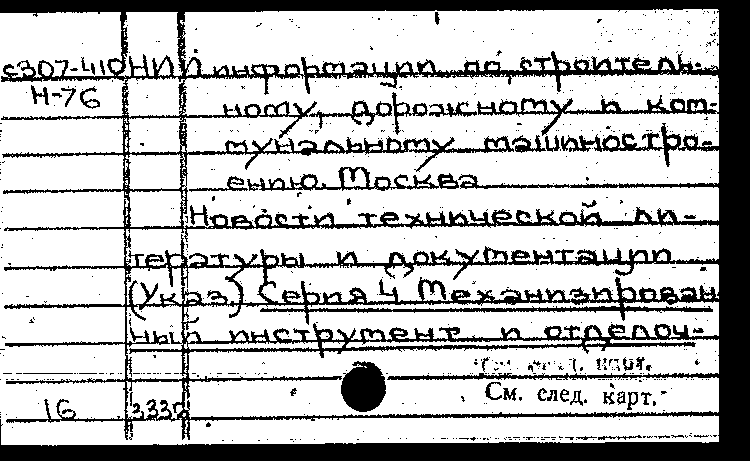 с307-410 НИИ информации по строитель-
Н-76 ному, дорожному и ком-
мунальному машиностро-
ению. Москва
Новости технической ли-
тературы и документации
(Указ.) Серия 4 Механизирован
ный инструмент и отделоч-
См. след. карт.
16